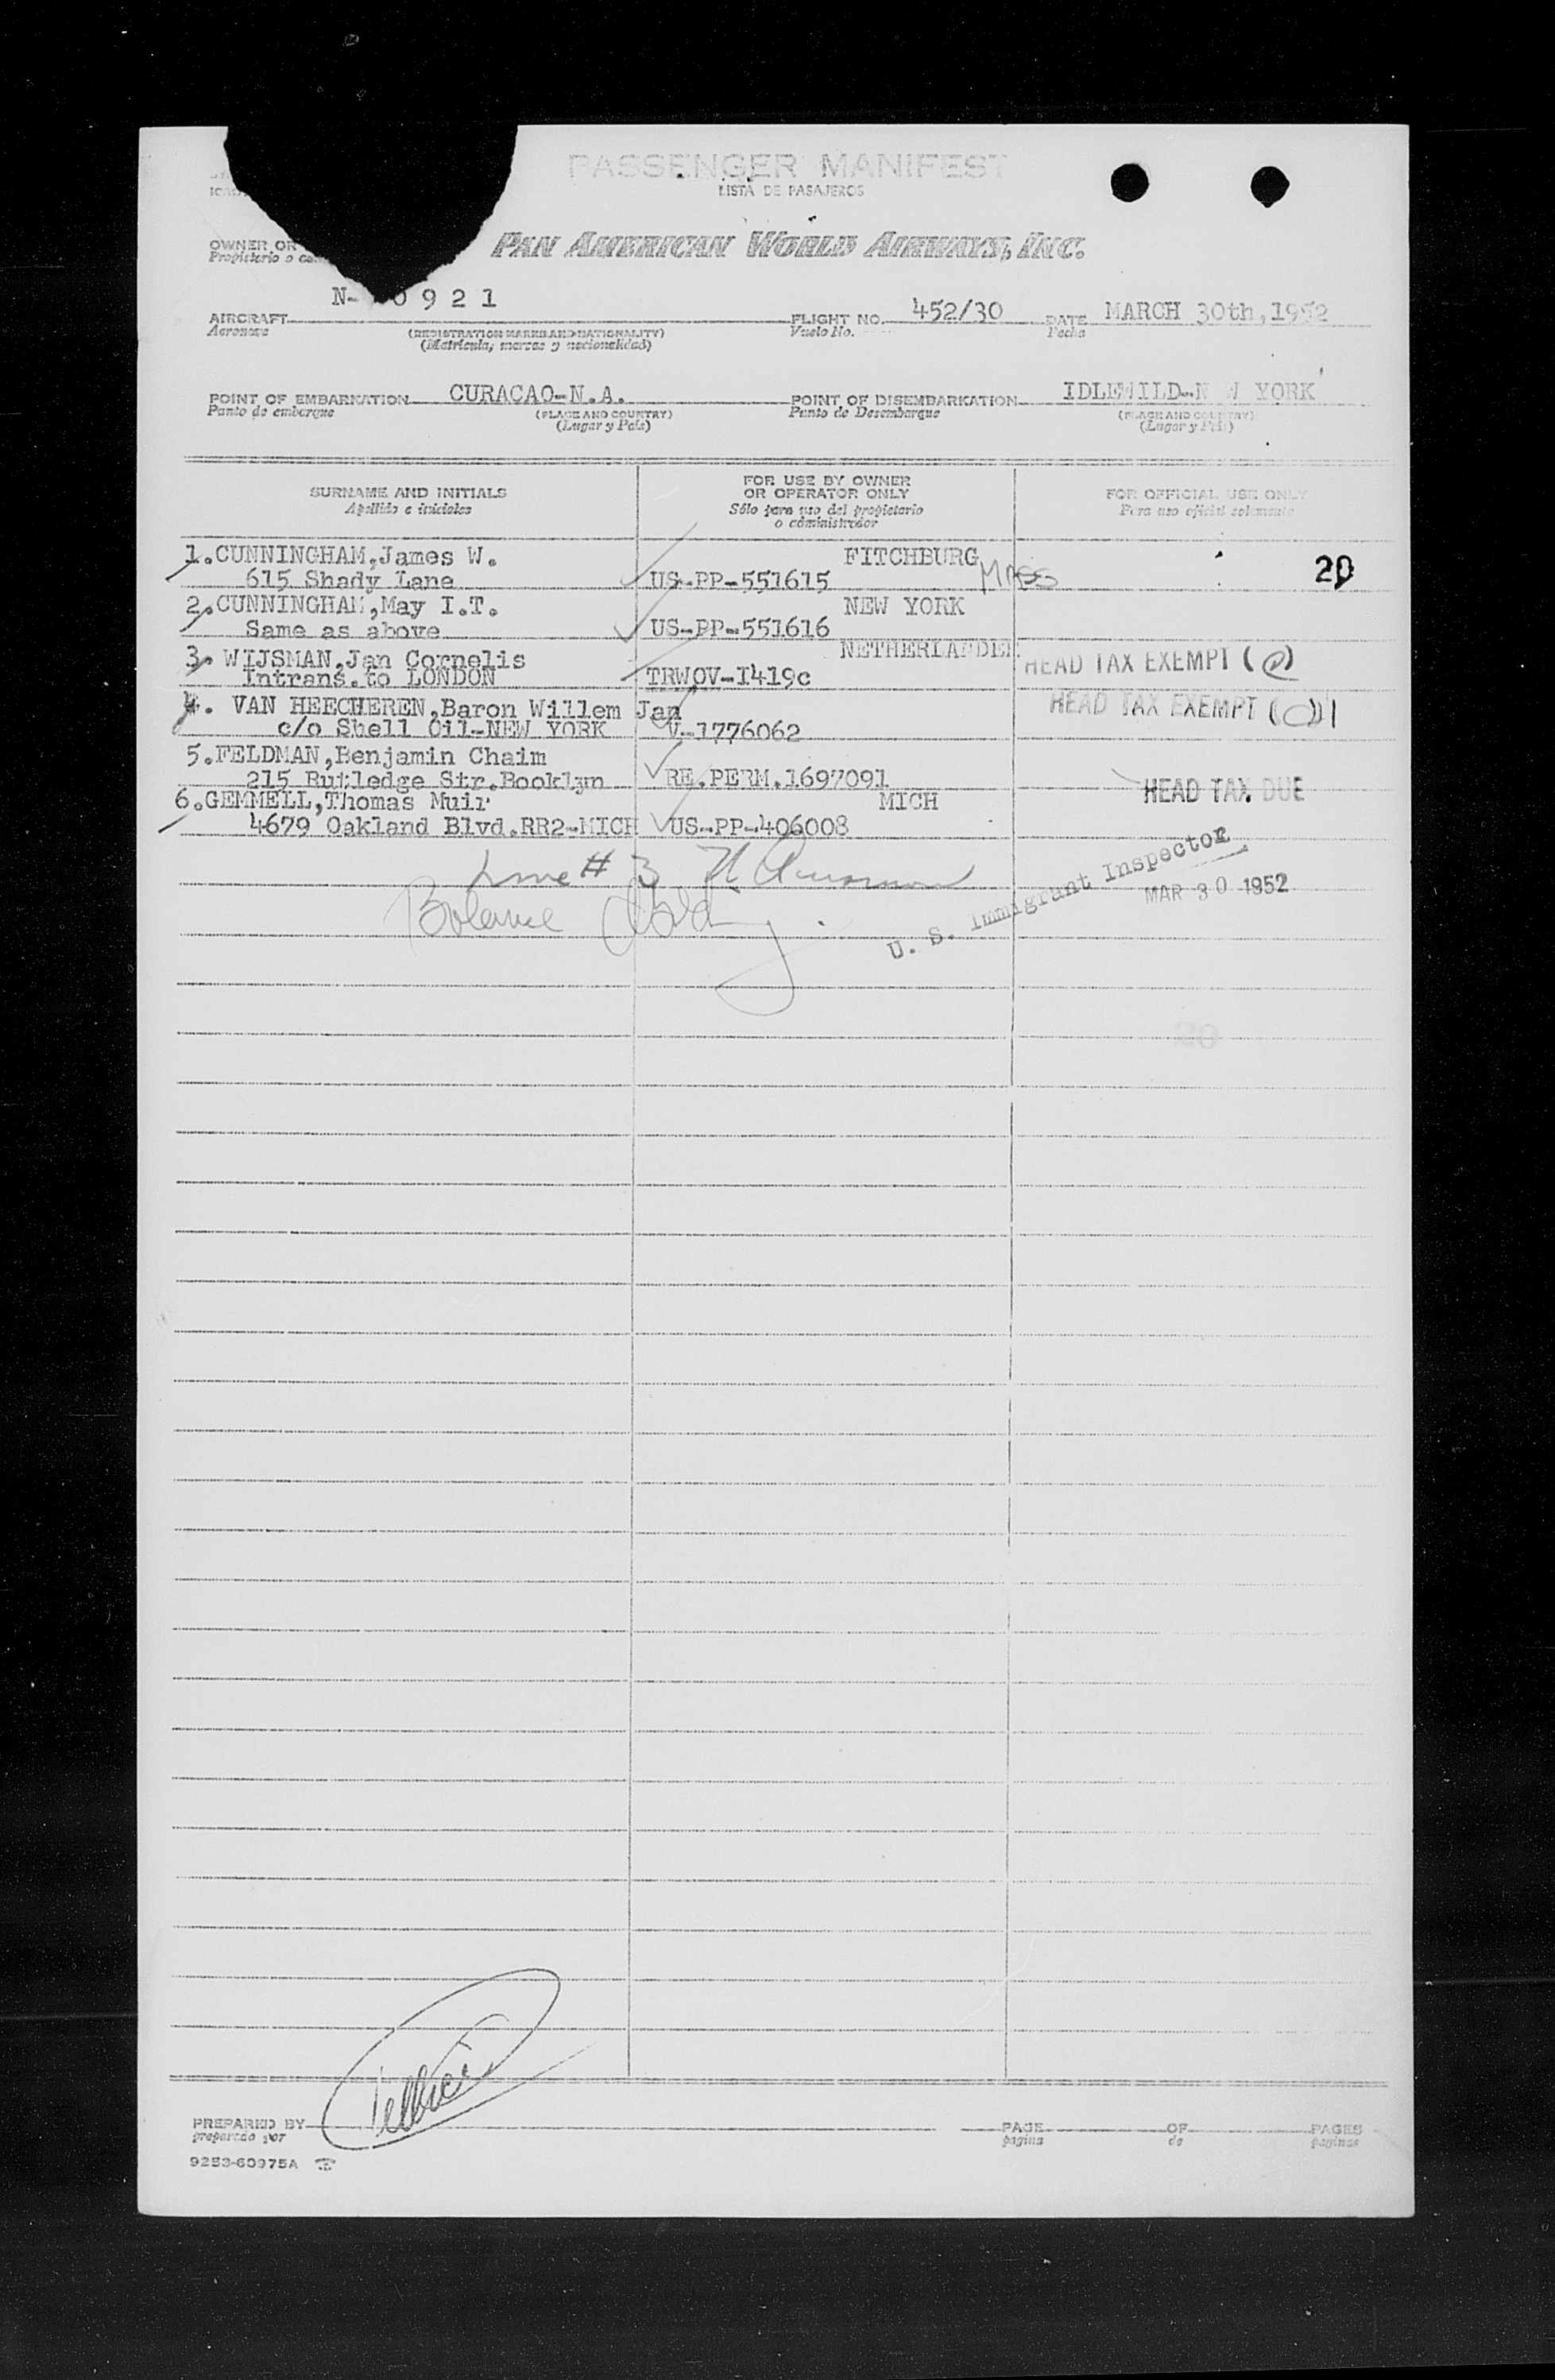 PASSENGER MANIFEST
LISTA DE PASAJEROS
OWNER OR
Propietario o
PAN AMERICAN WORLD AIRWAYS, INC.
N- 0 9 2 1
AIRCRAFT
Aeronave
(REGISTRATION MARKS AND NATIONALITY)
(Matricula, marcas y nacionalidad)
FLIGHT NO. 452/30
Vuelo No.
DATE MARCH 30th, 1952
Fecha
POINT OF EMBARKATION CURACAO-N.A.
Punto de embarque
(PLACE AND COUNTRY)
(Lugar y País)
POINT OF DISEMBARKATION IDLEWILD-N W YORK
Punto de Desembarque
(PLACE AND COUNTRY)
(Lugar y País)
SURNAME AND INITIALS
Apellido e iniciales
FOR USE BY OWNER
OR OPERATOR ONLY
Sólo para uso del propietario
o administrador
FOR OFFICIAL USE ONLY
Para uso oficial solamente
1.CUNNINGHAM,James W. FITCHBURG MASS
615 Shady Lane US-PP-551615 20
2.CUNNINGHAM,May I.T. NEW YORK
Same as above US-PP-551616
3. WIJSMAN,Jan Cornelis NETHERLANDER
Intrans.to LONDON TRWOV-I419c HEAD TAX EXEMPT
4. VAN HEECHEREN,Baron Willem Jan HEAD TAX EXEMPT
c/o Shell Oil-NEW YORK V-1776062
5.FELDMAN,Benjamin Chaim
215 Rutledge Str.Booklyn RE.PERM.1697091 HEAD TAX DUE
6.GEMMELL,Thomas Muir MICH
4679 Oakland Blvd.RR2-MICH US-PP-406008
# 3
U. S. Immigrant Inspector
MAR 30 1952
Balance
20
PREPARED BY
preparado por
PAGE OF PAGES
página de páginas
9253-60975A